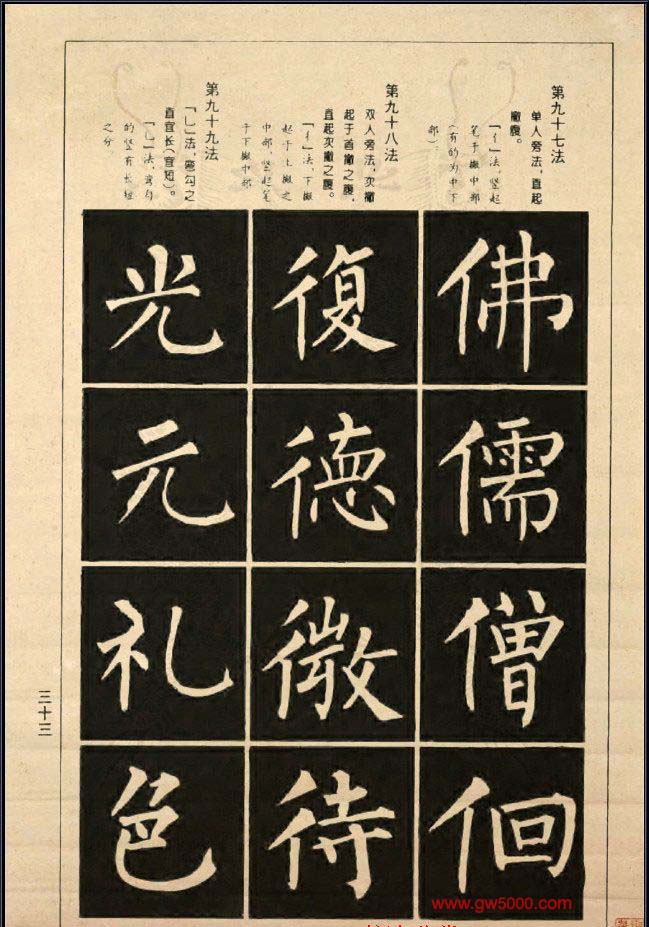 第九十七法
单人旁法，直起
撇腹。
「亻」法，竖起
笔于撇中部
（有的为中下
部）。
佛
儒
僧
佪
第九十八法
双人旁法，次撇
起于首撇之腹，
直起次撇之腹。
「彳」法，下撇
起于上撇之
中部，竖起笔
于下撇中部
復
德
微
待
第九十九法
「乚」法，弯勾之
直宜长（宜短）。
「乚」法，弯勾
的竖有长短
之分
光
元
礼
色
三十三
www.gw5000.com